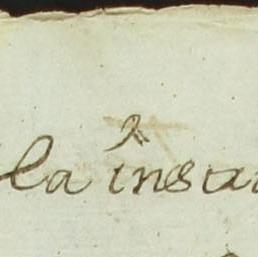 la insta